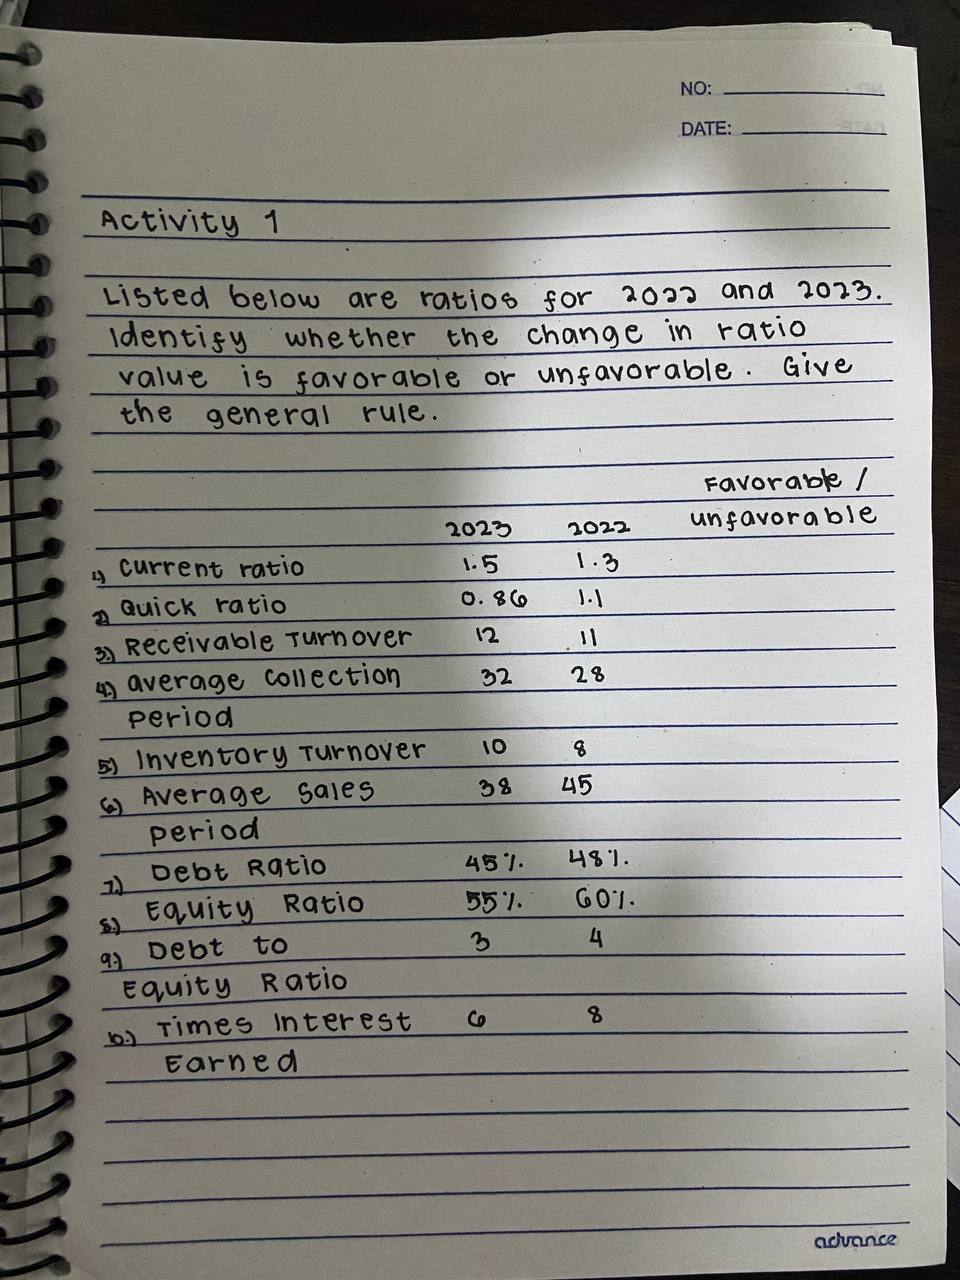 NO:
DATE:
Activity 1
Listed below are ratios for 2022 and 2023.
Identify whether the change in ratio
value is favorable or unfavorable. Give
the general rule.
Favorable /
2023 2022 unfavorable
1.) Current ratio 1.5 1.3
2) Quick ratio 0.86 1.1
3.) Receivable Turnover 12 11
4.) average collection 32 28
period
5.) Inventory Turnover 10 8
6.) Average Sales 38 45
period
7.) Debt Ratio 45%. 48%.
8.) Equity Ratio 55%. 60%.
9.) Debt to 3 4
Equity Ratio
10.) Times Interest 6 8
Earned
advance